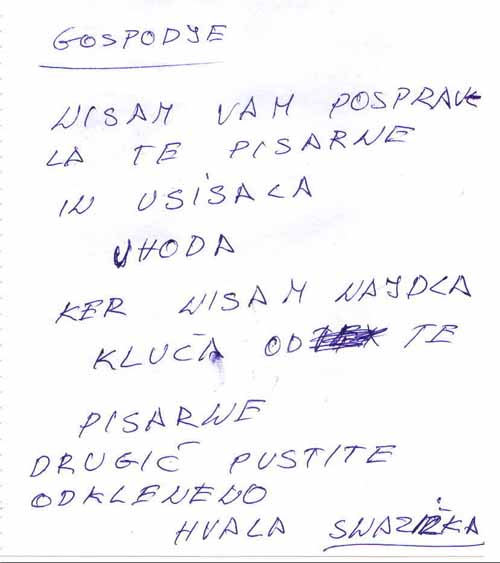 GOSPODJE
NISAM VAM POSPRAV
LA TE PISARNE
IN USISALA
VHODA
KER NISAM NAJDLA
KLUČA OD TE
PISARNE
DRUGIČ PUSTITE
ODKLENENO
HVALA SNAŽILKA